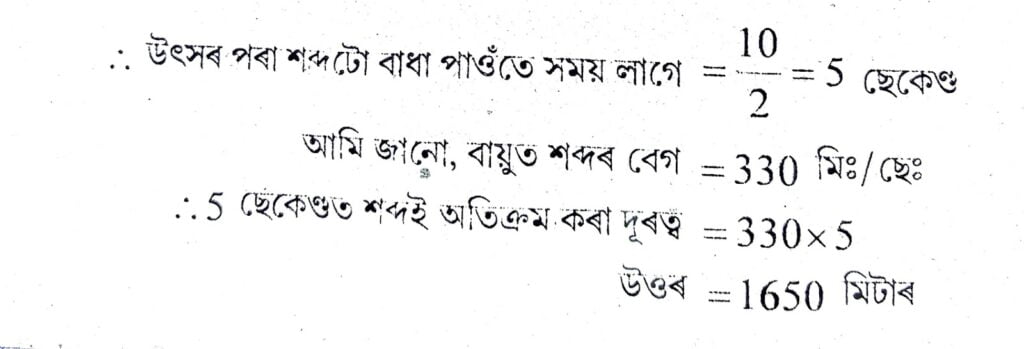 ∴ উৎসৰ পৰা শব্দটো বাধা পাওঁতে সময় লাগে = 10/2 = 5 ছেকেণ্ড
আমি জানো, বায়ুত শব্দৰ বেগ = 330 মিঃ/ছেঃ
∴ 5 ছেকেণ্ডত শব্দই অতিক্ৰম কৰা দূৰত্ব = 330×5
উত্তৰ = 1650 মিটাৰ